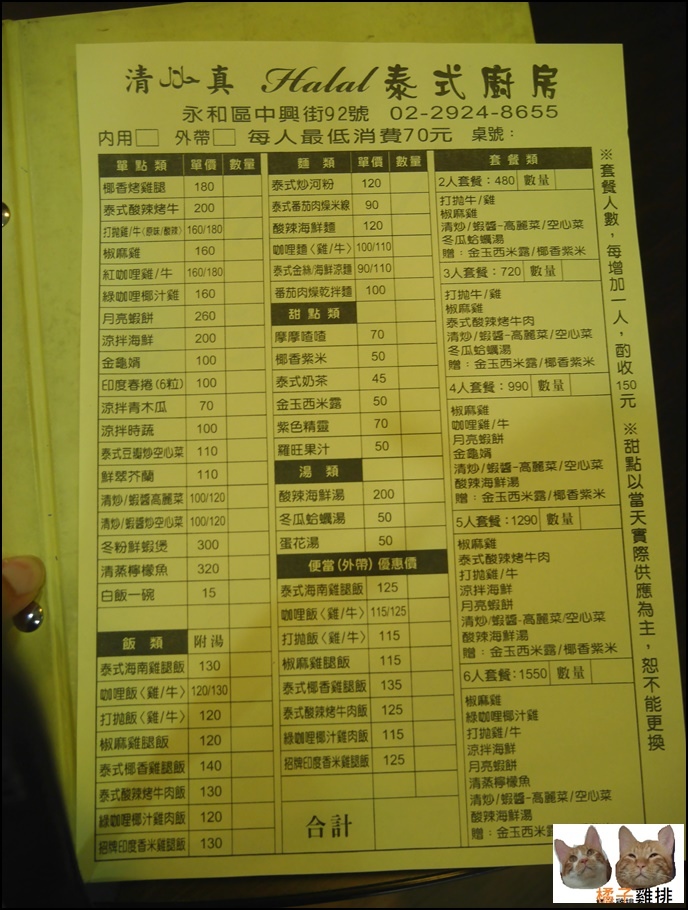 清 真 Halal 泰式廚房
永和區中興街92號 02-2924-8655
內用□ 外帶□ 每人最低消費70元 桌號：
單點類 單價 數量
椰香烤雞腿 180
泰式酸辣烤牛 200
打拋雞/牛(原味/酸辣) 160/180
椒麻雞 160
紅咖哩雞/牛 160/180
綠咖哩椰汁雞 160
月亮蝦餅 260
涼拌海鮮 200
金龜婿 100
印度春捲(6粒) 100
涼拌青木瓜 70
涼拌時蔬 100
泰式豆瓣炒空心菜 110
鮮翠芥蘭 110
清炒/蝦醬高麗菜 100/120
清炒/蝦醬炒空心菜 100/120
冬粉鮮蝦煲 300
清蒸檸檬魚 320
白飯一碗 15
飯類 附湯
泰式海南雞腿飯 130
咖哩飯〈雞/牛〉 120/130
打拋飯〈雞/牛〉 120
椒麻雞腿飯 120
泰式椰香雞腿飯 140
泰式酸辣烤牛肉飯 130
綠咖哩椰汁雞肉飯 120
招牌印度香米雞腿飯 130
麵類 單價 數量
泰式炒河粉 120
泰式番茄肉燥米線 90
酸辣海鮮麵 120
咖哩麵〈雞/牛〉 100/110
泰式金絲/海鮮涼麵 90/110
番茄肉燥乾拌麵 100
甜點類
摩摩喳喳 70
椰香紫米 50
泰式奶茶 45
金玉西米露 50
紫色精靈 70
羅旺果汁 50
湯類
酸辣海鮮湯 200
冬瓜蛤蠣湯 50
蛋花湯 50
便當(外帶)優惠價
泰式海南雞腿飯 125
咖哩飯〈雞/牛〉 115/125
打拋飯〈雞/牛〉 115
椒麻雞腿飯 115
泰式椰香雞腿飯 135
泰式酸辣烤牛肉飯 125
綠咖哩椰汁雞肉飯 115
招牌印度香米雞腿飯 125
合計
套餐類
2人套餐：480 數量
打拋牛/雞
椒麻雞
清炒/蝦醬-高麗菜/空心菜
冬瓜蛤蠣湯
贈：金玉西米露/椰香紫米
3人套餐：720 數量
打拋牛/雞
椒麻雞
泰式酸辣烤牛肉
清炒/蝦醬-高麗菜/空心菜
冬瓜蛤蠣湯
贈：金玉西米露/椰香紫米
4人套餐：990 數量
椒麻雞
咖哩雞/牛
月亮蝦餅
金龜婿
清炒/蝦醬-高麗菜/空心菜
酸辣海鮮湯
贈：金玉西米露/椰香紫米
5人套餐：1290 數量
椒麻雞
泰式酸辣烤牛肉
打拋雞/牛
涼拌海鮮
月亮蝦餅
清炒/蝦醬-高麗菜/空心菜
酸辣海鮮湯
贈：金玉西米露/椰香紫米
6人套餐：1550 數量
椒麻雞
綠咖哩椰汁雞
打拋雞/牛
涼拌海鮮
月亮蝦餅
清蒸檸檬魚
清炒/蝦醬-高麗菜/空心菜
酸辣海鮮湯
贈：金玉西米露
※套餐人數，每增加一人，酌收150元 ※甜點以當天實際供應為主，恕不能更換
橘子雞排